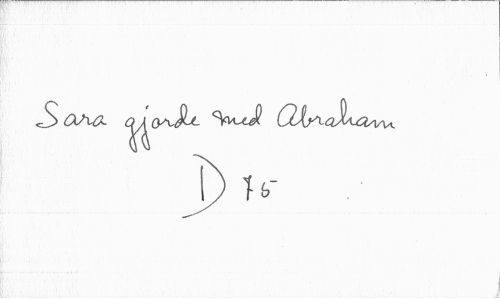 Sara gjorde med Abraham
D 75